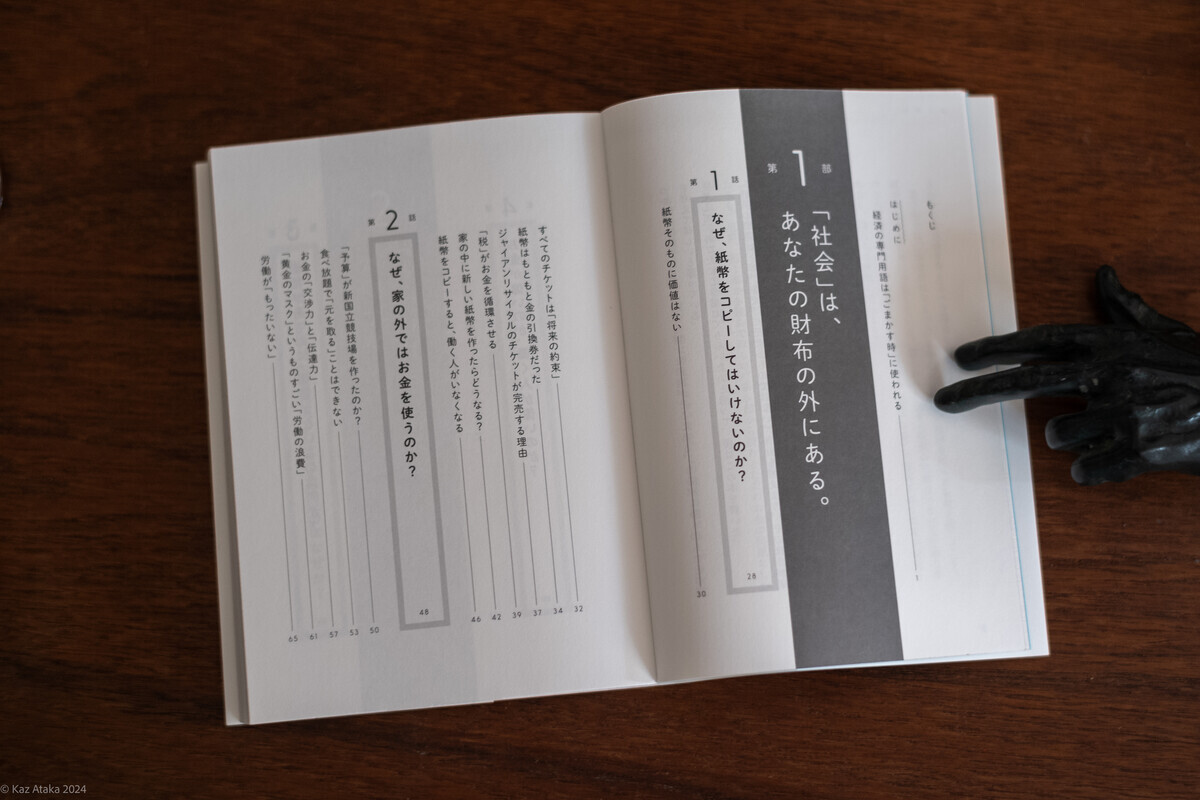 もくじ
はじめに
経済の専門用語は「ごまかす時」に使われる 1
第1部
「社会」は、
あなたの財布の外にある。
第1話
なぜ、紙幣をコピーしてはいけないのか? 28
紙幣そのものに価値はない 30
すべてのチケットは「将来の約束」 32
紙幣はもともと金の引換券だった 34
ジャイアンリサイタルのチケットが完売する理由 37
「税」がお金を循環させる 39
家の中に新しい紙幣を作ったらどうなる? 42
紙幣をコピーすると、働く人がいなくなる 46
第2話
なぜ、家の外ではお金を使うのか? 48
「予算」が新国立競技場を作ったのか? 50
食べ放題で「元を取る」ことはできない 53
お金の「交渉力」と「伝達力」 57
「黄金のマスク」というものすごい「労働の浪費」 61
労働が「もったいない」 65
© Kaz Ataka 2024